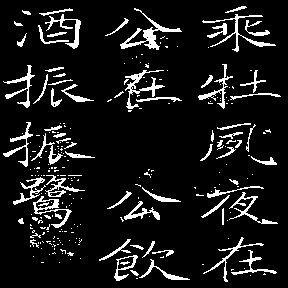 乘牡夙夜在
公在公飲
酒振振鷺